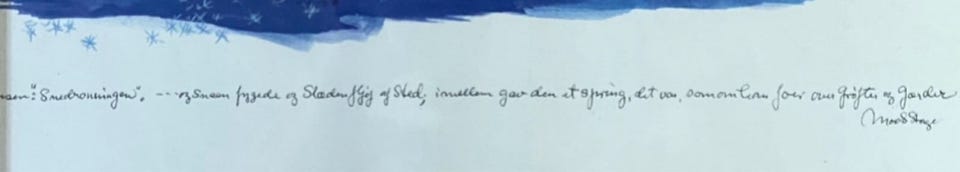 "Snedronningen". --- og Sneen fygede og Slæden fløj af Sted; imellem gav den et Spring, det var, som om han foer over Grøfter og Gærder
Mads Stage